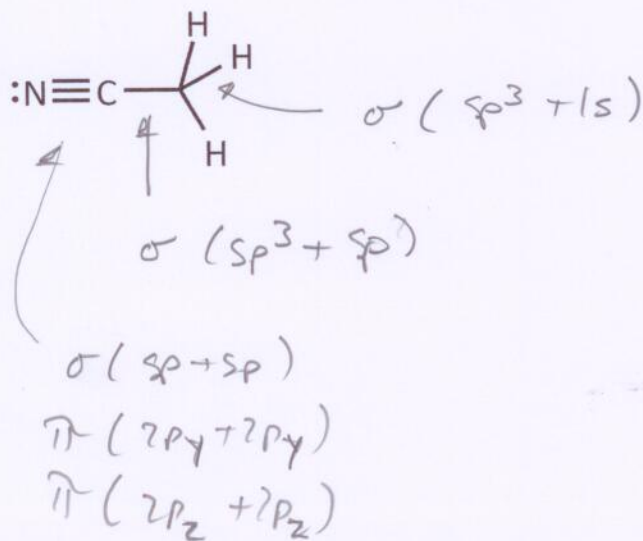 H
:N≡C H
H
σ ( sp³ + 1s )
σ ( sp³ + sp )
σ ( sp + sp )
π ( 2py + 2py )
π ( 2pz + 2pz )